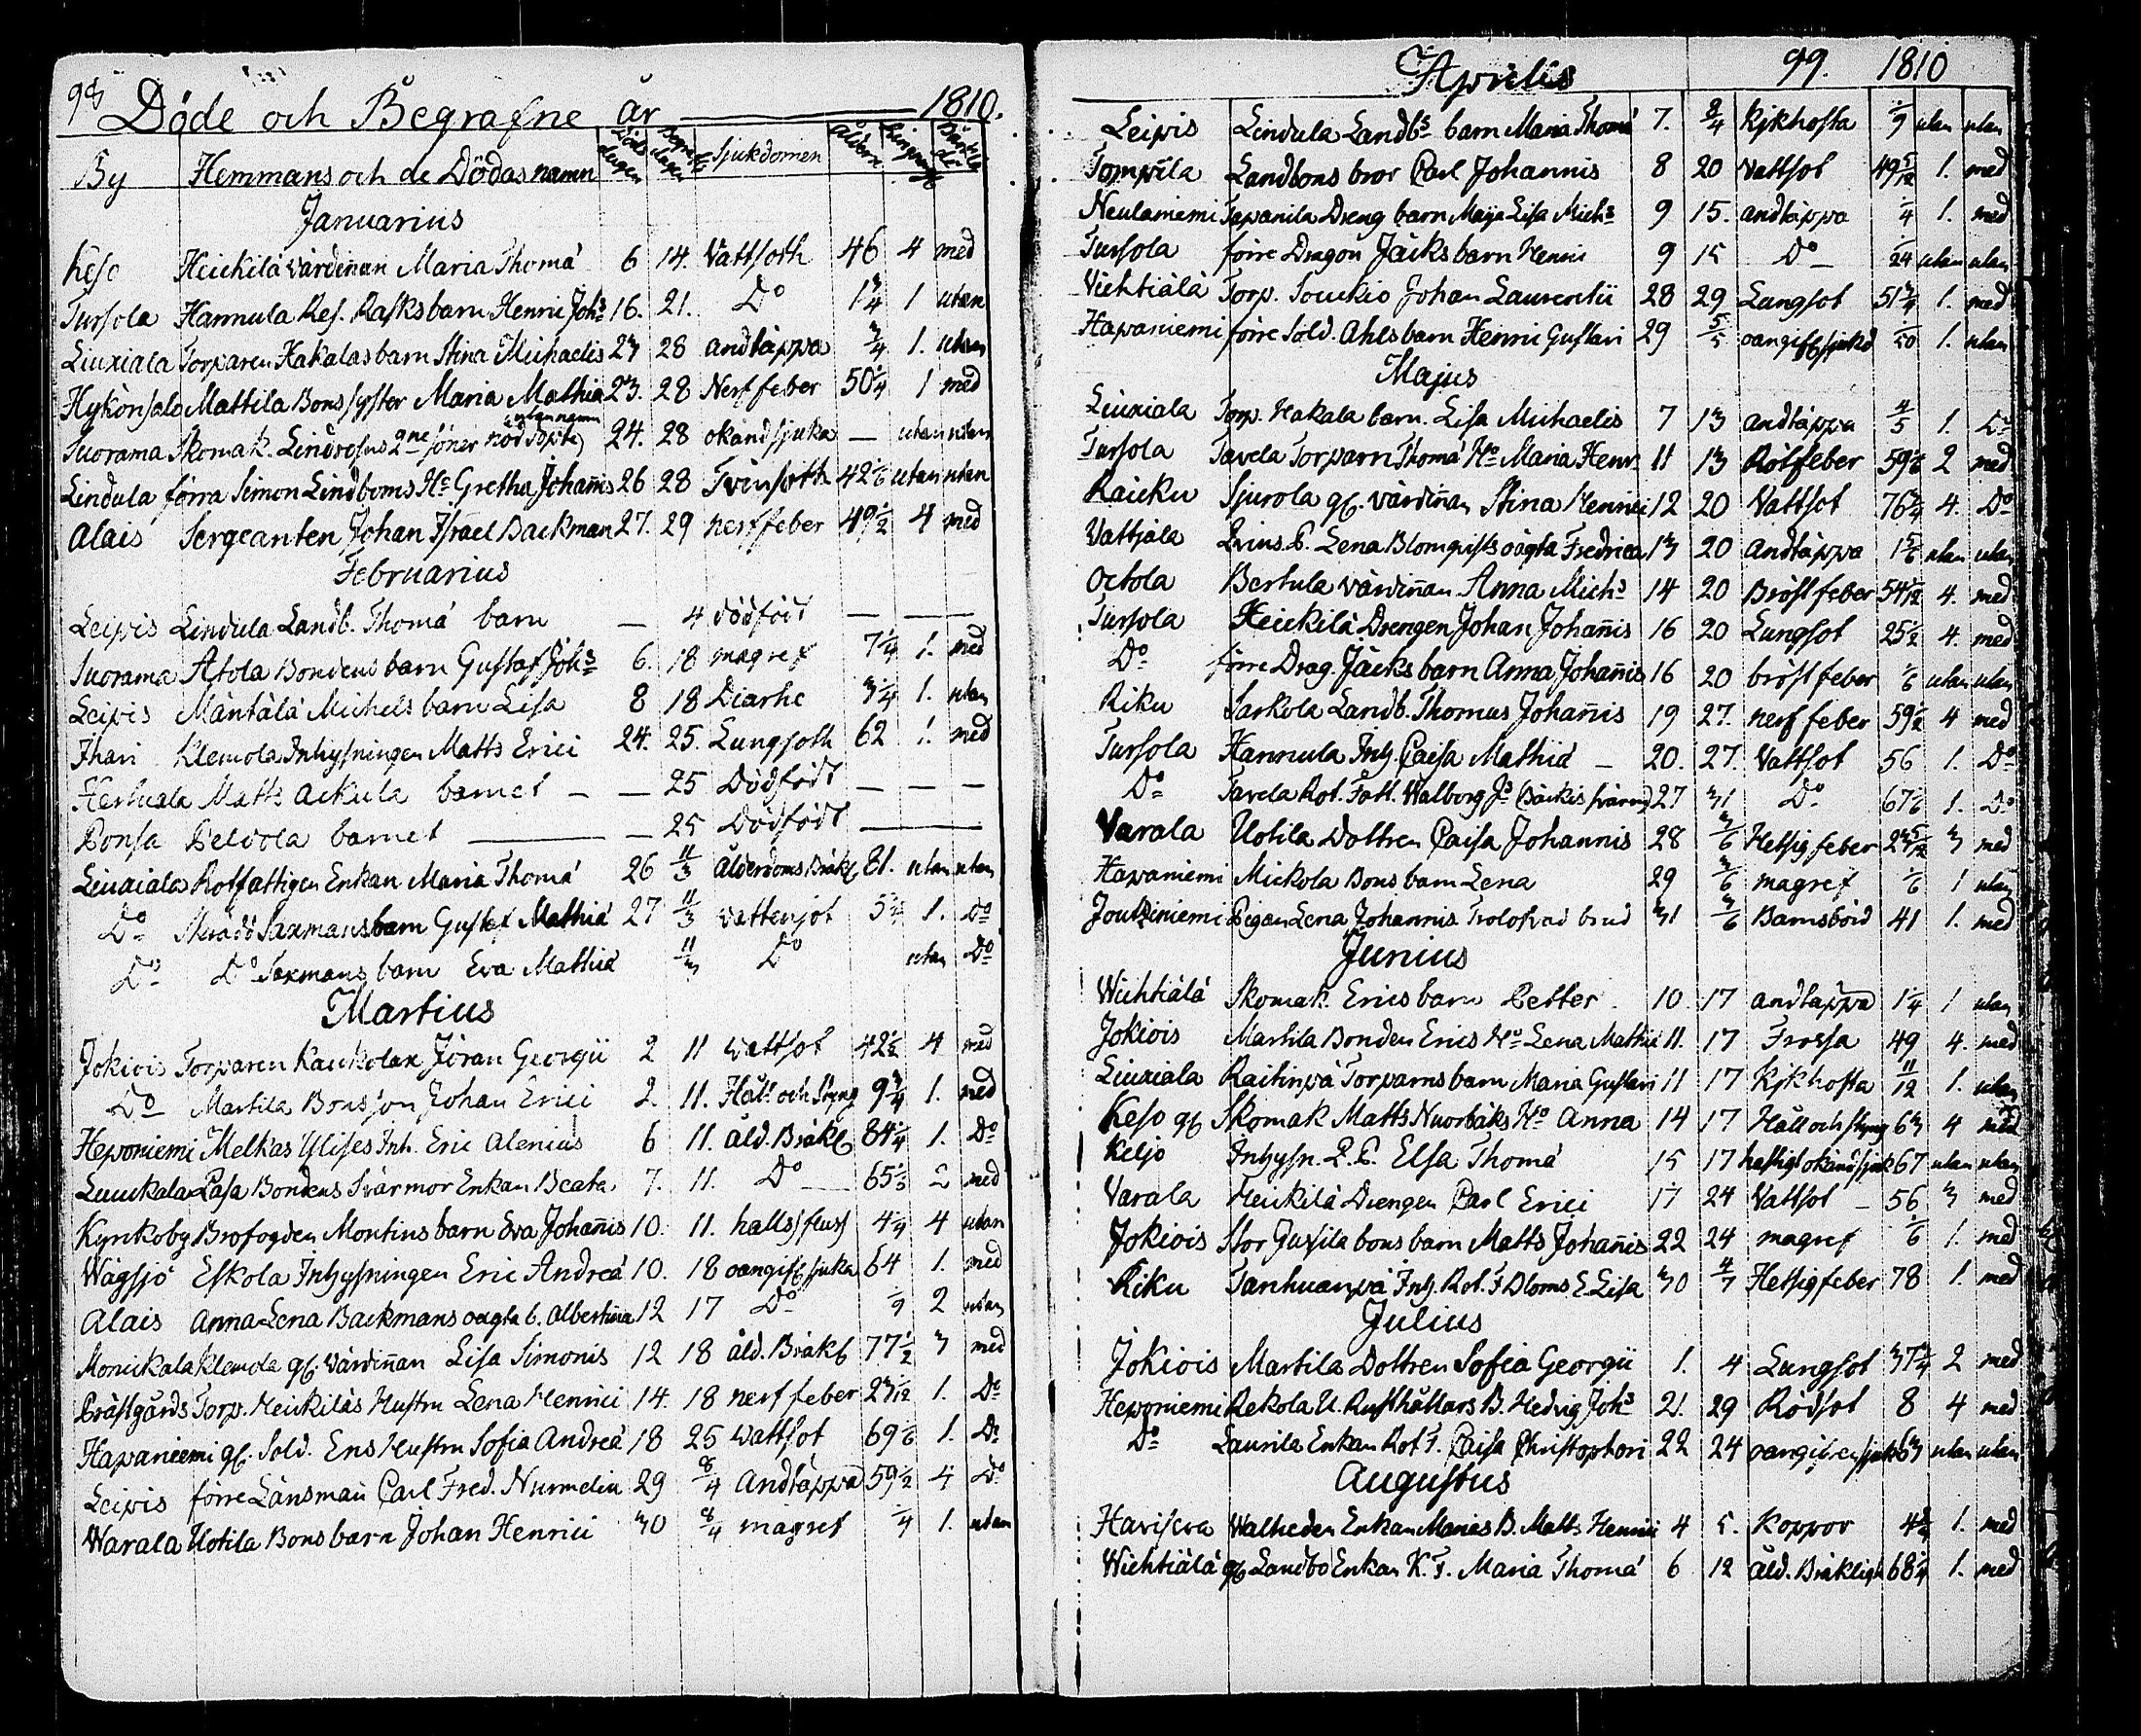 98
Döde och Begrafne år 1810.
By Hemmans och de Dödas namn Döds dagen Begrafn. dagen Sjukdomen Åldern Ringning
Januarius
Keso Heickilä värdiñan Maria Thomæ 6 14. Vattsoth 46 4 med
Tursola Hannula Res. Rasks barn Henric Johs 16. 21. Do 1 3/4 1 utan
Liuxiala Torparen Hakalas barn Stina Michaelis 23 28 andtäppa 3/4 1. utan
Hykönsalo Mattila Bonssyster Maria Mathiæ 23. 28 Nerffeber 50 1/4 1 med
Suorama Skomak. Lindrosens 2ne söner nöddöpte (utan namn) 24. 28 okändsjuka — utan utan
Lindula förra Simon Lindboms Ho Gretha Johañis 26 28 Tvinsoth 42 1/6 utan utan
Alais Sergeanten Johan Israel Backman 27. 29 nerffeber 49 1/2 4 med
Februarius
Leipis Lindula Landb. Thomæ barn — 4 dödfödt — —
Suorama Atola Bondens barn Gustaf Johs 6. 18 magref 7 1/4 1. med
Leipis Mäntälä Michels barn Lisa 8 18 Diarhe 3 1/4 1. utan
Ihari Klemola Inhysningen Matts Erici 24. 25. Lungsoth 62 1. med
Hertuala Matts Ackula barnet — — 25 Dödfödt — — —
Ponsa Peldola barnet — — 25 Dödfödt —
Liuxiala Rotfattigen Enkan Maria Thomæ 26 11/3 Ålderdoms Bräkl 81. utan utan
Do Skrädd Saxmans barn Gustaf Mathiæ 27 11/3 vattensot 5 1/4 1. Do
Do Do Saxmans barn Eva Mathiæ 11/3 Do utan Do
Martius
Jokiois Torparen Kaukolax Jöran Georgii 2 11 vattsot 42 1/2 4 med
Do Martila Bonsson Johan Erici 2. 11. Håll och Styng 9 3/4 1. med
Heponiemi Melkas Ulises Inh. Eric Alenius 6 11. åld. Bräkl 84 1/4 1. Do
Luuckala Pasa Bondens Svärmor Enkan Beata 7. 11. Do 65 1/3 2 med
Kyrckoby Brofogden Montins barn Eva Johañis 10. 11. hallsfluss 4 1/4 4 utan
Wägsjö Eskola Inhysningen Eric Andreæ 10. 18 oangifl sjuka 64 1. med
Alais Anna Lena Backmans oägta b. Albertina 12 17 Do 1/9 2 utan
Monickala Klemola gl. Värdiñan Lisa Simonis 12 18 åld. Bräkl 77 1/2 3 med
Prästgårds Torp. Heickiläs Hustru Lena Henrici 14. 18 nerffeber 23 1/12 1. Do
Hapaniemi gl. Sold. Ens Hustru Sofia Andreæ 18 25 vattsot 69 1/6 1. Do
Leipis förre Länsmañ Carl Fred. Nurmelin 29 8/4 Andtäppa 59 1/2 4 Do
Warala Uotila Bons barn Johan Henrici 30 8/4 magref 1/4 1. utan
Aprilis 99. 1810
Leipis Lindula Landbs barn Maria Thomæ 7. 8/4 Kjkhosta 1/9 utan utan
Tompila Landbons bror Carl Johannis 8 20 Vattsot 49 5/12 1. med
Neulaniemi Tapanila Dreng barn Maja Lisa Michs 9 15. andtäppa 1/4 1. med
Tursola förre Dragon Jäcks barn Henric 9 15 Do 1/24 utan utan
Vichtiälä Torp. Souckio Johan Laurentii 28 29 Lungsot 51 3/4 1. med
Hapaniemi förre Sold. Ahls barn Henric Gustavi 29 5/5 oangifl sjukd 1/50 1. utan
Majus
Liuxiala Torp. Hakala barn. Lisa Michaelis 7 13 andtäppa 4/5 1. Do
Tursola Tavela Torparn Thomæ Ho Maria Henr. 11 13 Rötfeber 59 1/6 2 med
Raicku Sjurola gl. värdiñan Stina Henrici 12 20 Vattsot 76 3/4 4. Do
Vattjala Lena Blomqvists oägta Fredrica 13 20 Andtäppa 1 5/6 utan utan
Octola Bertula värdiñan Anna Michs 14 20 Bröstfeber 54 1/12 4. med
Tursola Heickilä Drengen Johan Johañis 16 20 Lungsot 25 1/2 4. med
Do förre Drag. Jäcks barn Anna Johañis 16 20 bröstfeber 1/6 utan utan
Riku Sarkola Landb. Thomas Johañis 19 27. nerffeber 59 1/2 4 med
Tursola Hannula Inh. Caisa Mathiæ — 20. 27. Vattsot 56 1. Do
Do Tavela Rot. Fatt. Walborg Js 27 31 Do 67 1/6 1. Do
Varala Uotila Dottren Caisa Johannis 28 3/6 Hetsigfeber 23 5/12 3 med
Hapaniemi Mickola Bons barn Lena 29 3/6 magref 1/6 1 utan
Joutziniemi Pigan Lena Johannis Trolofvad brud 31 3/6 Barnsbörd 41 1. med
Junius
Wichtiälä Skomak. Erics barn Petter. 10. 17 andtäppa 1 1/4 1 utan
Jokiois Martila Bonden Erics Ho Lena Mathiæ 11. 17 Frossa 49 4. med
Liuxiala Raitinpä Torparns barn Maria Gustavi 11 17 Kjkhosta 11/12 1. utan
Keso gl Skomak Matts Nuorbäks Ho Anna 14 17 Håll och styng 63 4 med
Keljo Inhysn. Elsa Thomæ 15 17 hastigt okändsjuk 67 utan utan
Varala Heickilä Drengen Carl Erici 17 24 Vattsot — 56 3 med
Jokiois Stor Jussila bons barn Matts Johañis 22 24 magref 1/6 1. med
Riku Tanhuanpä Inh. Rot. F Bloms E Lisa 30 4/7 Hetsigfeber 78 1. med
Julius
Jokiois Martila Dottren Sofia Georgii 1. 4 Lungsot 37 1/4 2 med
Heponiemi Rekola U. Rusthållars B. Hedvig Johs 21. 29 Rödsot 8 4 med
Do Laurila Enkan Rot F. Caisa Christophori 22 24 oangifven sjuk 63 utan utan
Augustus
Haviseva Walheden Enkan Marias B. Matts Henrici 4 5. Koppor 4 1. med
Wichtiälä gl Landbo Enkan K. F. Maria Thomæ 6 12 åld. Bräkligh 68 1/4 1. med